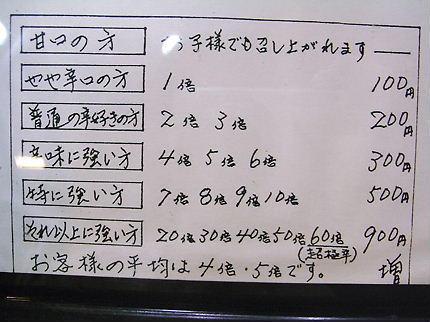 甘口の方 お子様でも召し上がれます
やや辛口の方 1倍 100円
普通の辛好きの方 2倍 3倍 200円
辛味に強い方 4倍 5倍 6倍 300円
特に強い方 7倍 8倍 9倍 10倍 500円
それ以上に強い方 20倍 30倍 40倍 50倍 60倍 900円
(超極辛)
お客様の平均は4倍・5倍です。 増